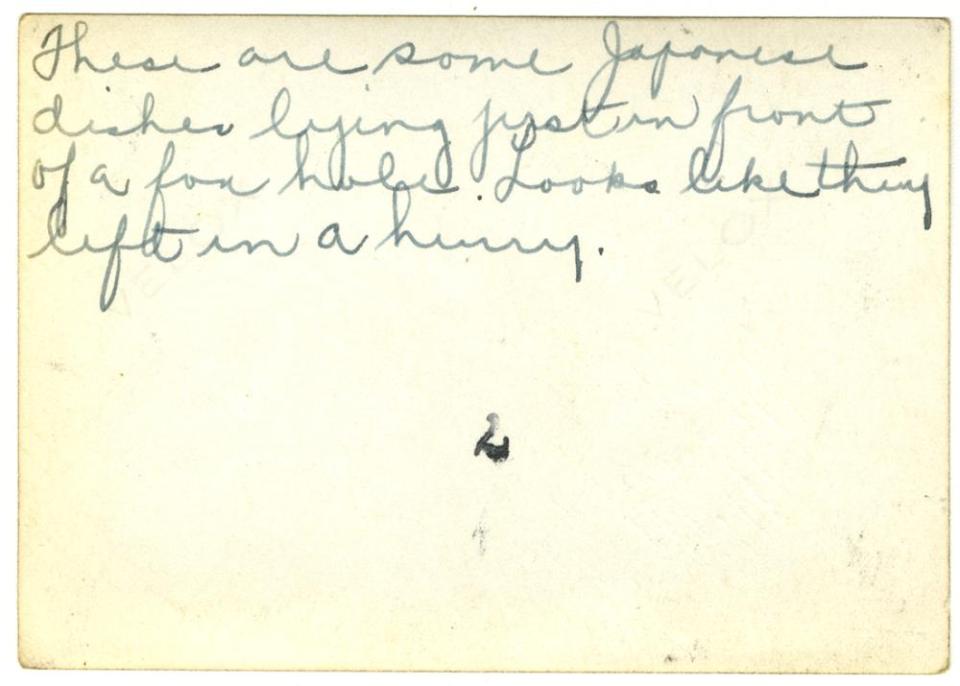 These are some Japanese
dishes lying just in front
of a fox hole. Looks like they
left in a hurry.
VELOX
2